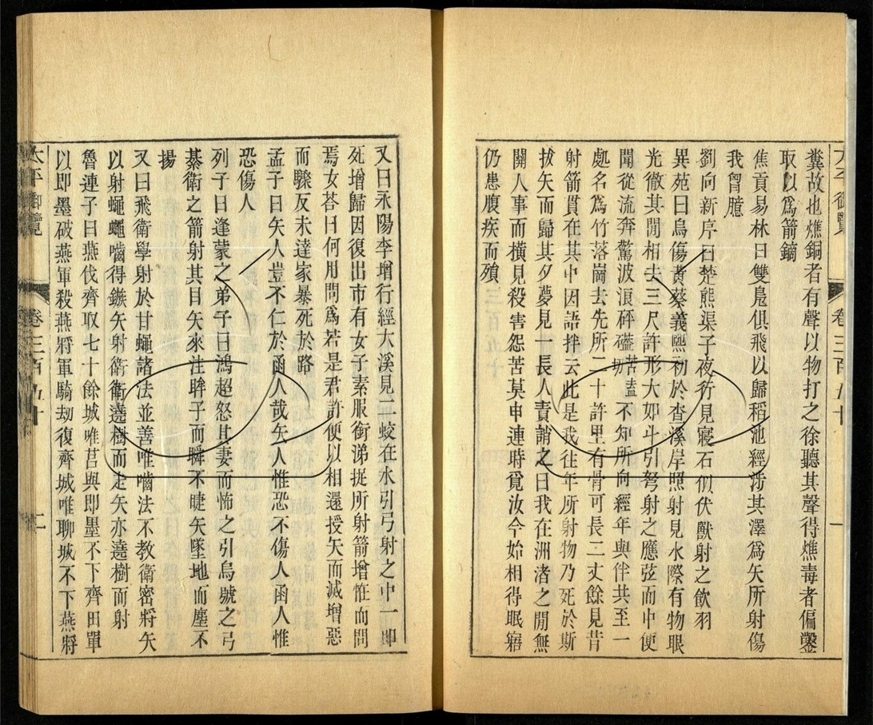 糞故也燋銅者有聲以物打之徐聽其聲得燋毒者偏鑿
取以爲箭鏑
焦貢易林曰雙鳧俱飛以歸稻池經涉其澤爲矢所射傷
我胷臆
劉向新序曰楚熊渠子夜行見寢石似伏獸射之飲羽
異苑曰烏傷黃蔡義熙初於查溪岸照射見水際有物眼
光徹其間相去三尺許形大如斗引弩射之應弦而中便
聞從流奔驚波浪砰磕苦盍不知所向經年與伴共至一
處名爲竹落崗去先所二十許里有骨可長二丈餘見昔
射箭貫在其中因語拌云此是我往年所射物乃死於斯
拔矢而歸其夕夢見一長人責誚之曰我在洲渚之間無
關人事而橫見殺害怨苦莫申連時覓汝今始相得眠寤
仍患腹疾而殞
太平御覽 卷三百五十 一
又曰永陽李增行經大溪見二蛟在水引弓射之中一即
死增歸因復出市有女子素服銜涕捉所射箭增怪而問
焉女荅曰何用問爲若是君許便以相還授矢而滅增惡
而驟反未達家暴死於路
孟子曰矢人豈不仁於函人哉矢人惟恐不傷人函人惟
恐傷人
列子曰逢蒙之弟子曰鴻超怒其妻而怖之引烏號之弓
綦衛之箭射其目矢來注眸子而瞬不睫矢墜地而塵不
揚
又曰飛衛學射於甘蠅諸法並善唯嚙法不教衛密將矢
以射蠅蠅嚙得鏃矢射衛衛遶樹而走矢亦遶樹而射
魯連子曰燕伐齊取七十餘城唯莒與即墨不下齊田單
以即墨破燕軍殺燕將軍騎劫復齊城唯聊城不下燕將
太平御覽 卷三百五十 二